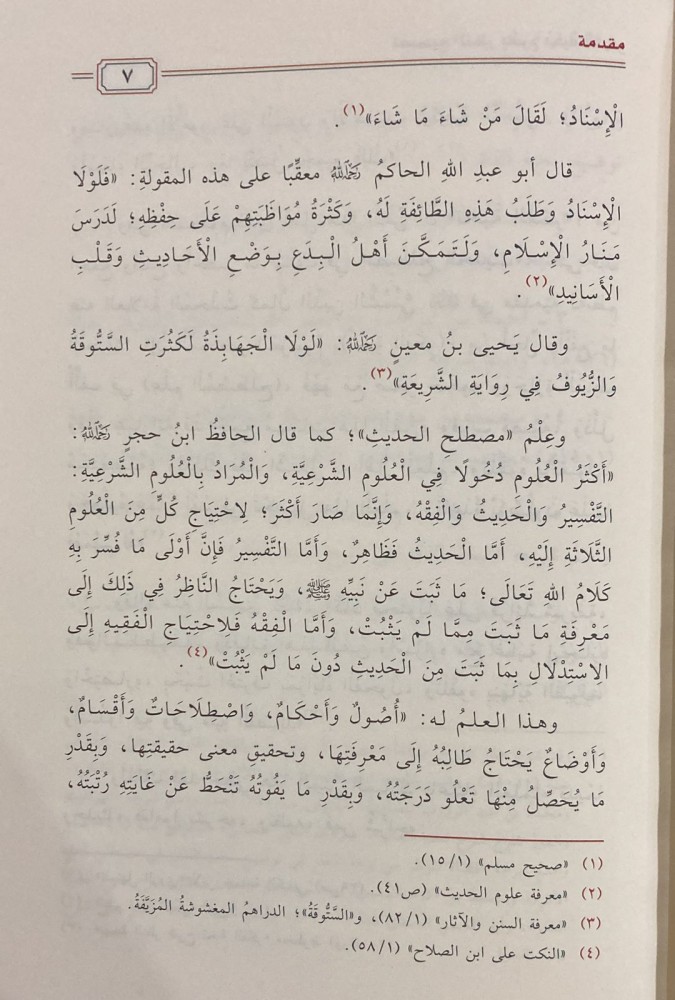 مقدمة
٧
الْإِسْنَادُ؛ لَقَالَ مَنْ شَاءَ مَا شَاءَ»(١).
قال أبو عبدِ اللهِ الحاكمُ رَحِمَهُ اللهُ معقِّبًا على هذه المقولةِ: «فَلَوْلَا
الْإِسْنَادُ وَطَلَبُ هَذِهِ الطَّائِفَةِ لَهُ، وَكَثْرَةُ مُوَاظَبَتِهِمْ عَلَى حِفْظِهِ؛ لَدَرَسَ
مَنَارُ الْإِسْلَامِ، وَلَتَمَكَّنَ أَهْلُ الْبِدَعِ بِوَضْعِ الْأَحَادِيثِ وَقَلْبِ
الْأَسَانِيدِ»(٢).
وقال يَحيى بنُ معينٍ رَحِمَهُ اللهُ: «لَوْلَا الْجَهَابِذَةُ لَكَثُرَتِ السَّتُّوقَةُ
وَالزُّيُوفُ فِي رِوَايَةِ الشَّرِيعَةِ»(٣).
وعِلْمُ «مصطلحِ الحديثِ»؛ كما قال الحافظُ ابنُ حجرٍ رَحِمَهُ اللهُ:
«أَكْثَرُ الْعُلُومِ دُخُولًا فِي الْعُلُومِ الشَّرْعِيَّةِ، وَالْمُرَادُ بِالْعُلُومِ الشَّرْعِيَّةِ:
التَّفْسِيرُ وَالْحَدِيثُ وَالْفِقْهُ، وَإِنَّمَا صَارَ أَكْثَرَ؛ لِاحْتِيَاجِ كُلٍّ مِنَ الْعُلُومِ
الثَّلَاثَةِ إِلَيْهِ، أَمَّا الْحَدِيثُ فَظَاهِرٌ، وَأَمَّا التَّفْسِيرُ فَإِنَّ أَوْلَى مَا فُسِّرَ بِهِ
كَلَامُ اللهِ تَعَالَى؛ مَا ثَبَتَ عَنْ نَبِيِّهِ ﷺ، وَيَحْتَاجُ النَّاظِرُ فِي ذَلِكَ إِلَى
مَعْرِفَةِ مَا ثَبَتَ مِمَّا لَمْ يَثْبُتْ، وَأَمَّا الْفِقْهُ فَلِاحْتِيَاجِ الْفَقِيهِ إِلَى
الِاسْتِدْلَالِ بِمَا ثَبَتَ مِنَ الْحَدِيثِ دُونَ مَا لَمْ يَثْبُتْ»(٤).
وهذا العلمُ له: «أُصُولٌ وَأَحْكَامٌ، وَاصْطِلَاحَاتٌ وَأَقْسَامٌ،
وَأَوْضَاعٌ يَحْتَاجُ طَالِبُهُ إِلَى مَعْرِفَتِهَا، وتحقيقِ معنى حقيقتِها، وَبِقَدْرِ
مَا يُحَصِّلُ مِنْهَا تَعْلُو دَرَجَتُهُ، وَبِقَدْرِ مَا يَفُوتُهُ تَنْحَطُّ عَنْ غَايَتِهِ رُتْبَتُهُ،
(١) «صحيح مسلم» (١٥/١).
(٢) «معرفة علوم الحديث» (ص٤١).
(٣) «معرفة السنن والآثار» (٨٢/١)، و«السَّتُّوقَةُ»؛ الدراهمُ المغشوشةُ المُزَيَّفَةُ.
(٤) «النكت على ابن الصلاح» (٥٨/١).